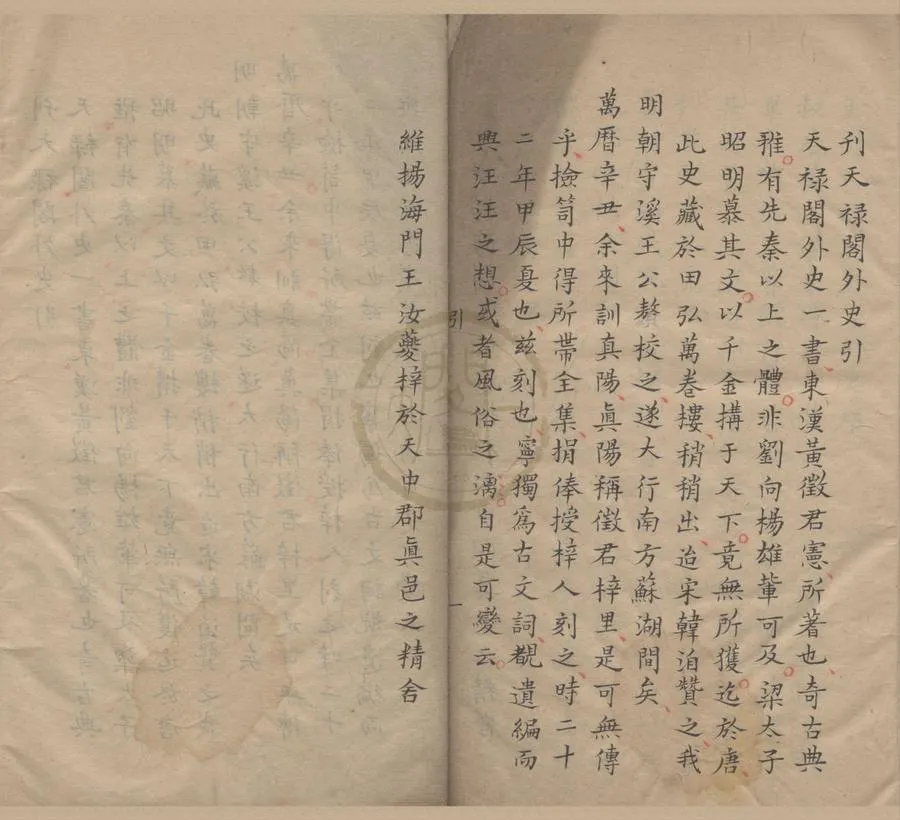 刊天禄閣外史引
天禄閣外史一書東漢黄徵君憲所著也奇古典
雅有先秦以上之體非劉向楊雄軰可及梁太子
昭明慕其文以千金搆于天下竟無所獲迄於唐
此史藏於田弘萬卷樓稍稍出迨宋韓洎贊之我
明朝守溪王公鏊校之遂大行南方蘇湖間矣
萬暦辛丑余來訓真陽眞陽稱徵君梓里是可無傳
乎撿笥中得所帶全集捐俸授梓人刻之時二十
二年甲辰夏也兹刻也寧獨爲古文詞覩遺編而
興汪汪之想或者風俗之漓自是可變云
引
一
維揚海門王汝夔梓於天中郡眞邑之精舍